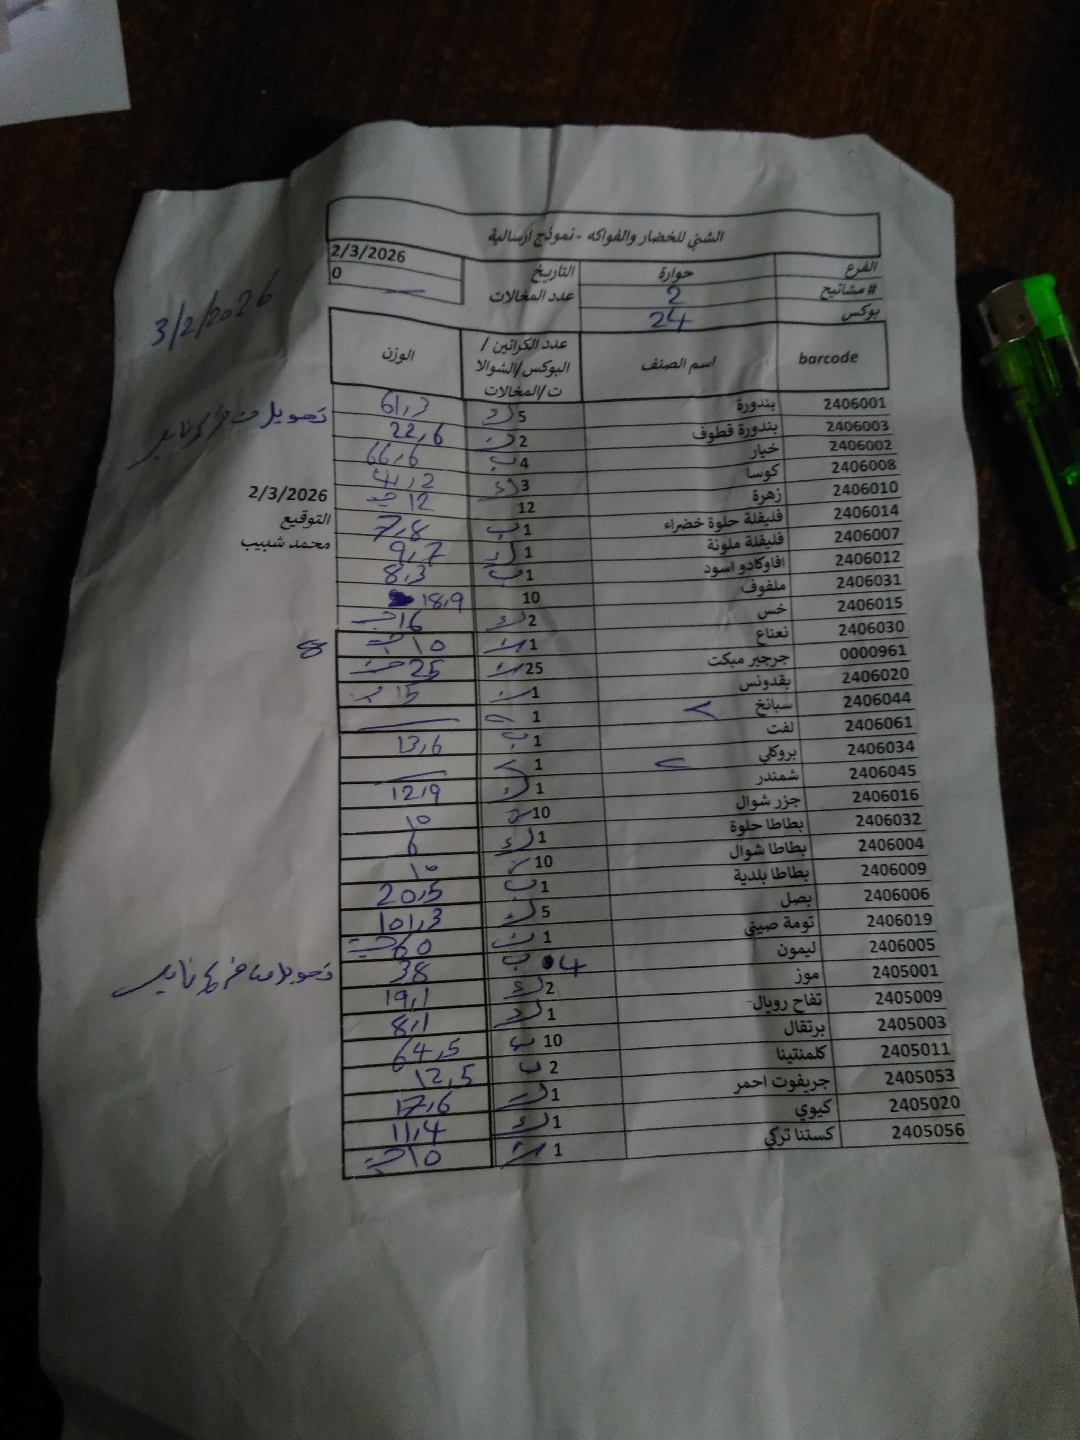 الشني للخضار والفواكه - نموذج ارسالية
الفرع حوارة التاريخ 2/3/2026
# مشاتيح 2 عدد المخالات 0
بوكس 24
3/2/2026
barcode اسم الصنف عدد الكراتين / البوكس/الشوالات/المخالات الوزن
2406001 بندورة 5 61,3
2406003 بندورة قطوف 2 22,6
تحويل من
2406002 خيار 4 ب 66,6
2406008 كوسا 3 41,2
2406010 زهرة 12 12
2406014 فليفلة حلوة خضراء 1 ب 7,8
2406007 فليفلة ملونة 1 9,7
2406012 افاوكادو اسود 1 ب 8,3
2406031 ملفوف 10 18,9
2406015 خس 2 16
2406030 نعناع 1 10
0000961 جرجير مبكت 25 25
2406020 بقدونس 1 15
2406044 سبانخ 1
2406061 لفت 1 ب 13,6
2406034 بروكلي 1
2406045 شمندر 1 12,9
2406016 جزر شوال 10 10
2406032 بطاطا حلوة 1 6
2406004 بطاطا شوال 10 10
2406009 بطاطا بلدية 1 ب 20,5
2406006 بصل 5 101,3
2406019 تومة صيني 1 60
2406005 ليمون 4 ب 38
2405001 موز 2 19,1
2405009 تفاح رويال 1 8,1
2405003 برتقال 10 ب 64,5
2405011 كلمنتينا 2 ب 12,5
2405053 جريفوت احمر 1 17,6
2405020 كيوي 1 11,4
2405056 كستنا تركي 1 10
2/3/2026
التوقيع
محمد شبيب
8